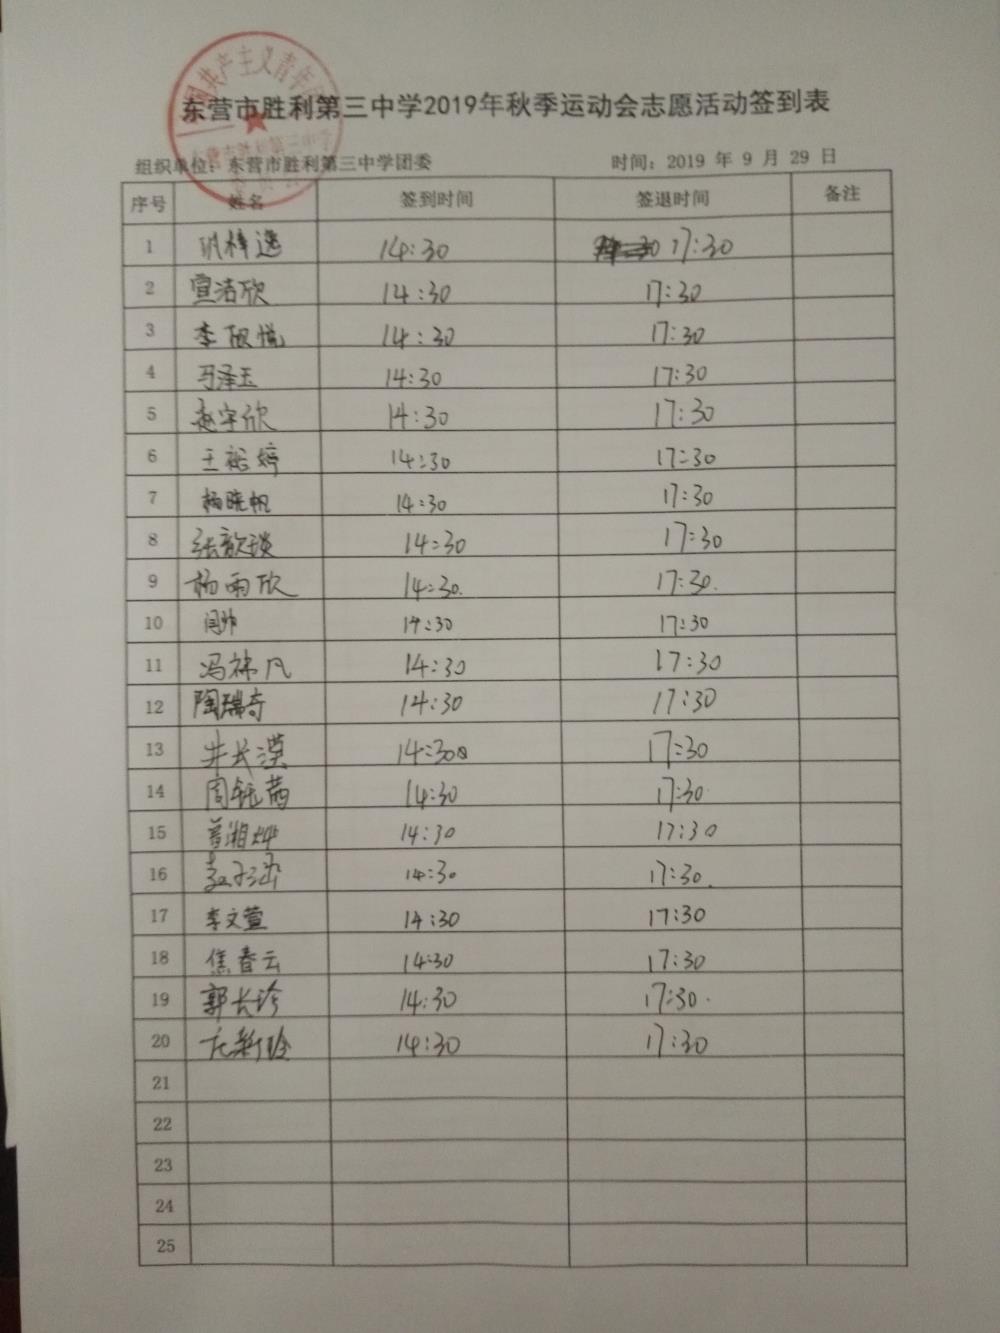 共产主义青年团
东营市胜利第三中学2019年秋季运动会志愿活动签到表
组织单位：东营市胜利第三中学团委 时间：2019 年 9 月 29 日
序号 姓名 签到时间 签退时间 备注
1 14:30 17:30
2 宣洁欣 14:30 17:30
3 李欣悦 14:30 17:30
4 马泽玉 14:30 17:30
5 赵宇欣 14:30 17:30
6 王裕婷 14:30 17:30
7 杨晓帆 14:30 17:30
8 张歆琰 14:30 17:30
9 杨雨欣 14:30. 17:30.
10 闫帅 14:30 17:30
11 冯祎凡 14:30 17:30
12 陶瑞奇 14:30 17:30
13 牛长漠 14:30 17:30
14 周钰茜 14:30 17:30
15 14:30 17:30
16 14:30 17:30.
17 李文萱 14:30 17:30
18 焦春云 14:30 17:30
19 郭长珍 14:30 17:30.
20 14:30 17:30
21
22
23
24
25